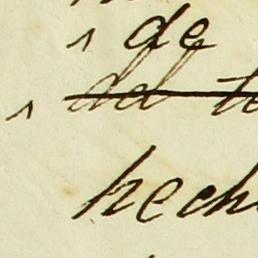 de
del
hech